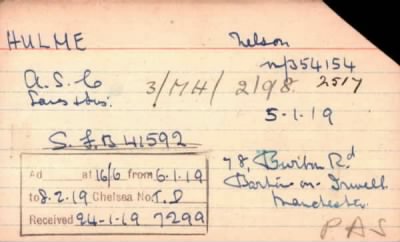 HULME
Nelson
M/354154
A.S.C
3/MH/2198
2517
5-1-19
S.I.B 41592
Ad at 16/6 from 6.1.19
to 8.2.19 Chelsea No. I.D
Received 24-1-19 7299
78, Rd
Barton on Irwell
Manchester
PAS